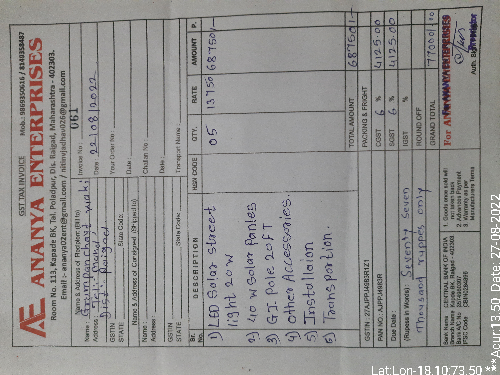 GST TAX INVOICE
Mob.: 9869350616 / 8149358487
ANANYA ENTERPRISES
Room No. 113, Kapade BK, Tal. Poladpur, Dis. Raigad, Maharashtra - 402303.
Name & Address of Recipient (Bill to)
Invoice No.: 061
Date 22/08/2022
Address
Your Order No.
GSTIN
STATE
State Code
Date
Name & Address of Consigned (Shipped to)
Challan No.
Name
Date
Address
Transport Name
GSTIN
STATE
State Code
Sr. No. DESCRIPTION HSN CODE QTY. RATE AMOUNT P.
1) LED Solar street 05 13750 68750/-
light 20W
2) 40 w Solar Panles
3) G.I. Pole 20 FT
4) Other Accessories.
5) Installaion
6) Transportion.
TOTAL AMOUNT 68750/-
PACKING & PROFIT
CGST 6 % 4125.00
SGST 6 % 4125.00
IGST %
ROUND OFF
GRAND TOTAL 77000/-
Due Date :
(Rupees in Words) : Seventy Seven
Thousand rupees only
Bank Name : CENTRAL BANK OF INDIA
IFSC Code
1. Goods once sold will not taken back
2. Advance Payment
3. Warranty as per Manufacturere Terms
For ANANYA ENTERPRISES
Lat/Lon-18.10:73.50***Acur13.50 Date: 27-08-2022